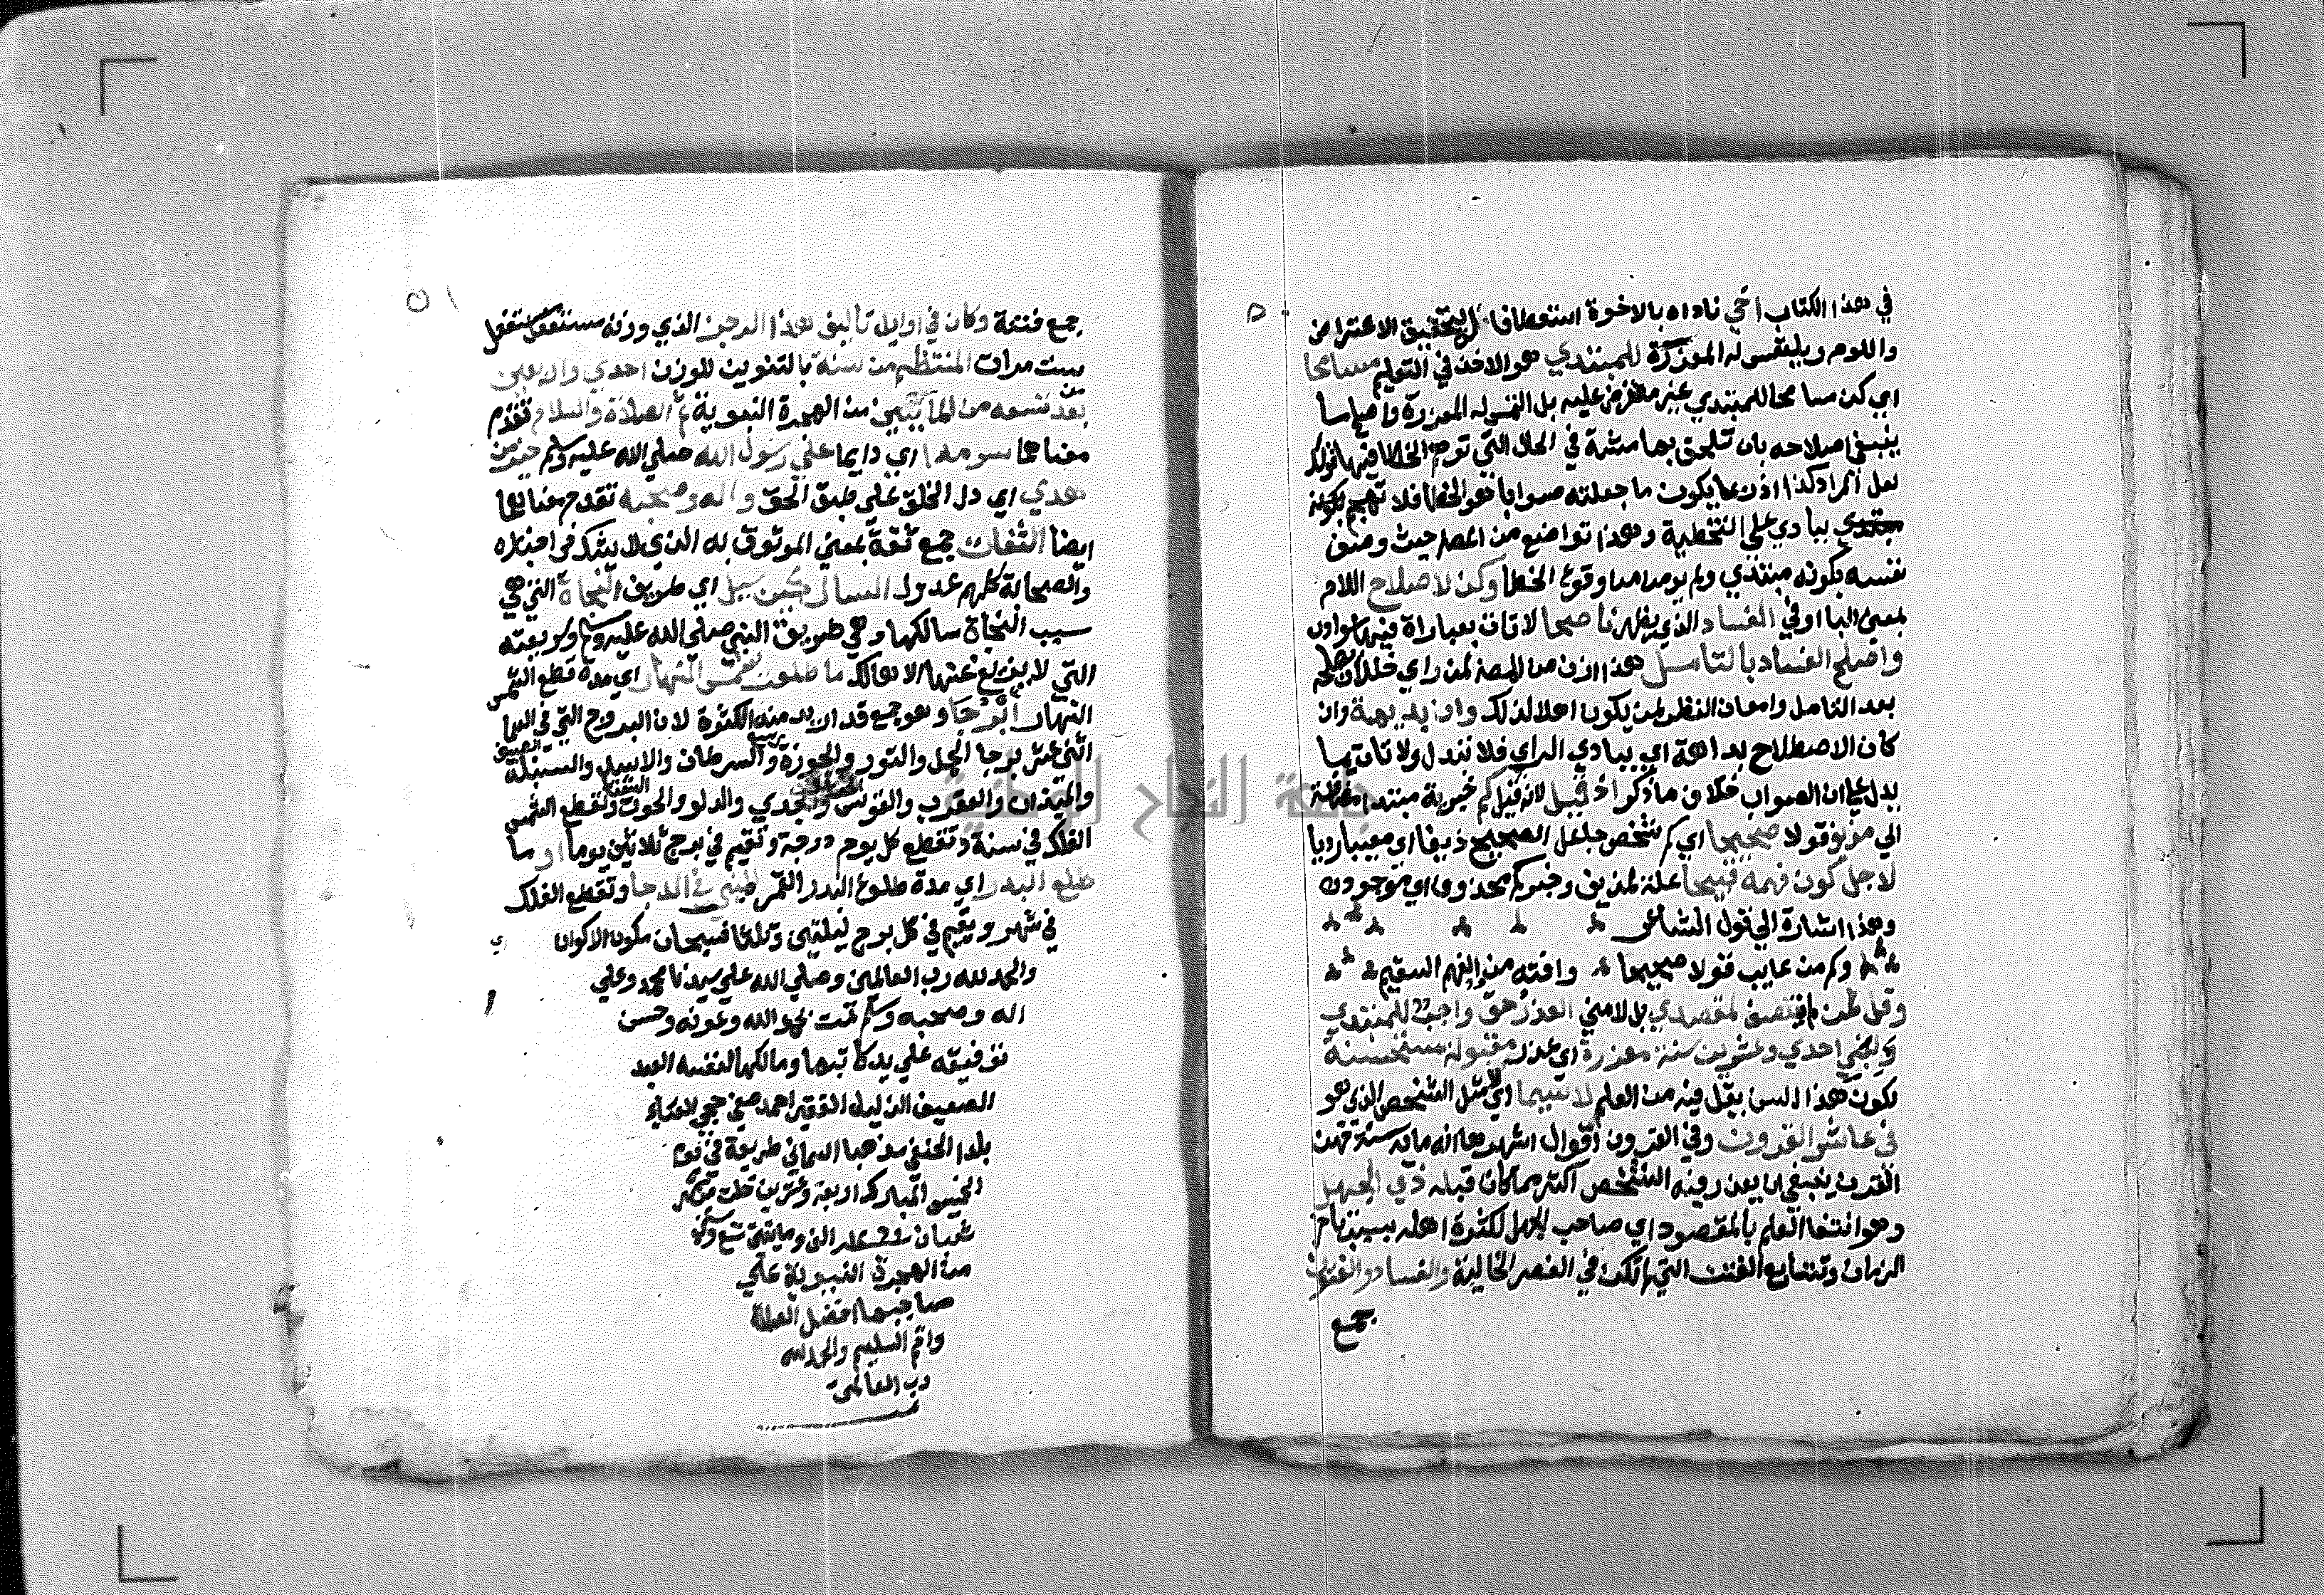 في هذا الكتاب اخي ناداه بالاخوة استعطافا التحقيق الاعتراض
واللوم ويلتمس له المعذرة للمبتدي هو الاخذ في التعليم مسامحا
اي كن مسامحا للمبتدي غير معترض عليه بل التمس له المعذرة واصلح ما
ينبغي اصلاحه بان تلحق بهامشه في الحال التي توهم الخطا فيها قولك
لعل المراد كذا اذ ربما يكون ما جعلته صوابا هو الخطا فلا تهجم
ببادي على التخطية وهذا تواضع من المص حيث وصف
نفسه بكونه مبتدي ولم يومن من وقوع الخطا وكن لاصلاح اللام
بمعنى البا او في الفساد الذي يظهر ناصحا لا تات بعبارة فيها
واصلح الفساد بالتامل هذا اذن من المص لمن راي خللا ان يصلحه
بعد التامل وامعان النظر لمن يكون اهلا لذلك وان بديهة وان
كان الاصطلاح بداهة اي ببادي الراي فلا تبدل ولا تات بما
يدل على ان الصواب خلاف ما ذكر اذ قيل لانه قيل كم خبرية مبتدا
الي مزيف قولا صحيحا اي كم شخص جاعل الصحيح ذيفا اي معيبا رديا
لاجل كون فهمه قبيحا علة لمزيف وخبركم محذوف اي موجودون
وهذا اشارة الي قول الشاعر
وكم من عايب قولا صحيحا وافته من الفهم السقيم
وقل لمن لم ينتصف لمقصدي بل لامني العذر حق واجب للمبتدي
ولبني احدي وعشرين سنة معذرة اي عذر مقبولة مستحسنة
لكون هذا السن يقل فيه من العلم لا سيما اي مثل الشخص الذي هو
في عاشر القرون وفي القرون اقوال اشهرها انه مائة سنة فهذا
القرن ينبغي ان يعذر فيه الشخص اكثر مما كان قبله ذي الجهل
وهو انتفا العلم بالمقصود اي صاحب الجهل لكثرة اهله بسبب تاخر
الزمان وتتابع الفتن التي لم تكن في العصر الخالية والفساد والفتون
جمع
جمع فتنة وكان في اوايل تاليف هذا الرجز الذي وزنه مستفعل مستفعل
ست مرات المنتظم من سنة بالتنوين للوزن احدي واربعين
من بعد تسعه من المآ يتين من الهجرة النبوية ثم الصلاة والسلام تقدم
معناهما سرمدا اي دايما على رسول الله صلي الله عليه وسلم خير من
هدي اي دل الخلق على طريق الحق واله وصحبه تقدم معناهما
ايضا الثقات جمع ثقة بمعنى الموثوق به الذي لا يشك في اخباره
والصحابة كلهم عدول السالكين سبيل اي طريق النجاة التي هي
سبب النجاة سالكها وهي طريق النبي صلي الله عليه وسلم وشريعته
التي لا يزيغ عنها الا هالك ما طلعت شمس النهار اي مدة قطع الشمس
النهار ابرجا وهو جمع قد اريد منه الكثرة لان البروج التي في السما
اثني عشر برجا الحمل والثور والجوزة والسرطان والاسد والسنبلة
والميزان والعقرب والقوس والجدي والدلو والحوت وتقطع الشمس
الفلك في سنة وتقطع كل يوم درجة وتقيم في برج ثلاثين يوما او ما
طلع البدر اي مدة طلوع البدر القمر المنير في الدجا وتقطع الفلك
في شهر ويقيم في كل برج ليلتين وثلثا فسبحان مكون الاكوان
والحمد لله رب العالمين وصلي الله على سيدنا محمد وعلي
اله وصحبه وسلم تمت بحمد الله وعونه وحسن
توفيقه على يد كاتبها ومالكها لنفسه العبد
الضعيف الذليل الفقير احمد
بلدا الحنفي مذهبا طريقة في يوم
الخميس المبارك اربعة وعشرين خلت من شهر
شعبان الف ومايتين
من الهجرة النبوية علي
صاحبها افضل الصلاة
واتم التسليم والحمد لله
رب العالمين
جامعة النجاح الوطنية